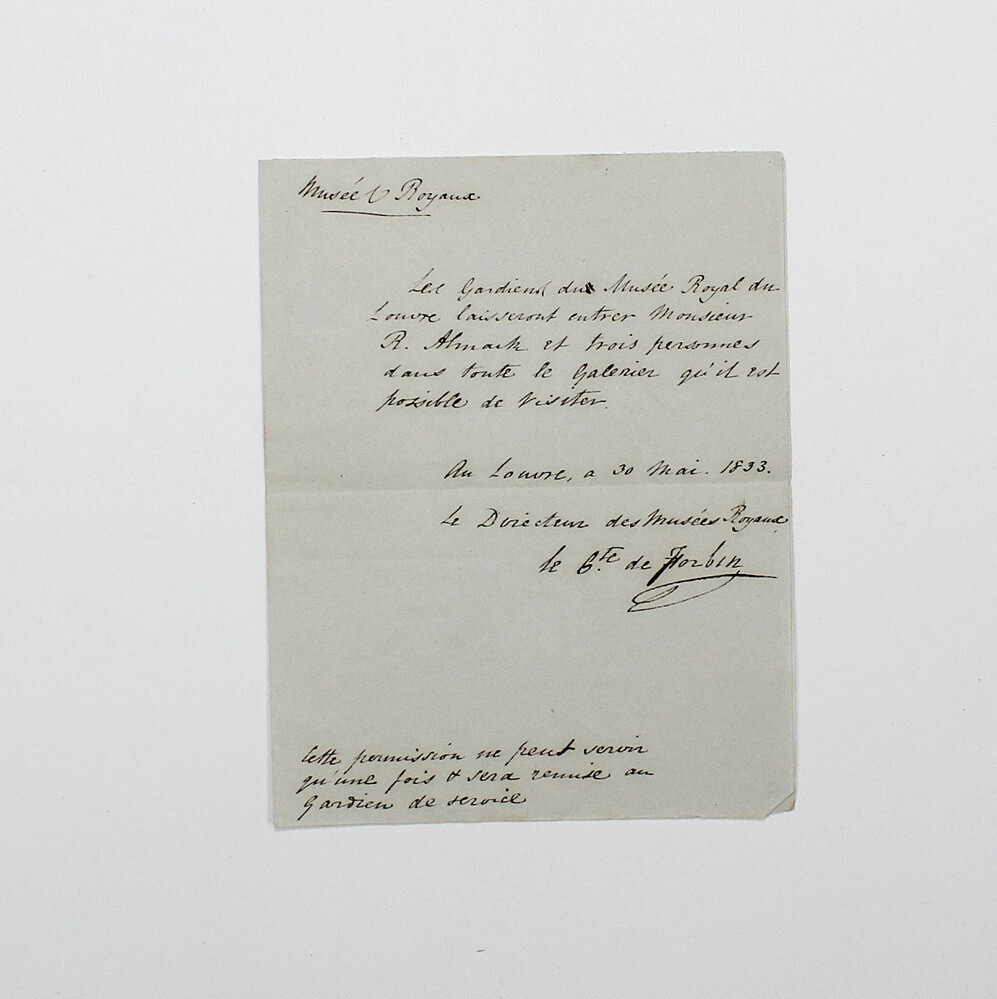 Musées Royaux
Les Gardiens du Musée Royal du
Louvre laisseront entrer Monsieur
R. Almack et trois personnes
dans toute le Galeries qu'il est
possible de visiter.
Au Louvre, a 30 Mai. 1833.
Le Directeur des Musées Royaux
le Cte. de Forbin
Cette permission ne peut servir
qu'une fois & sera remise au
Gardien de service